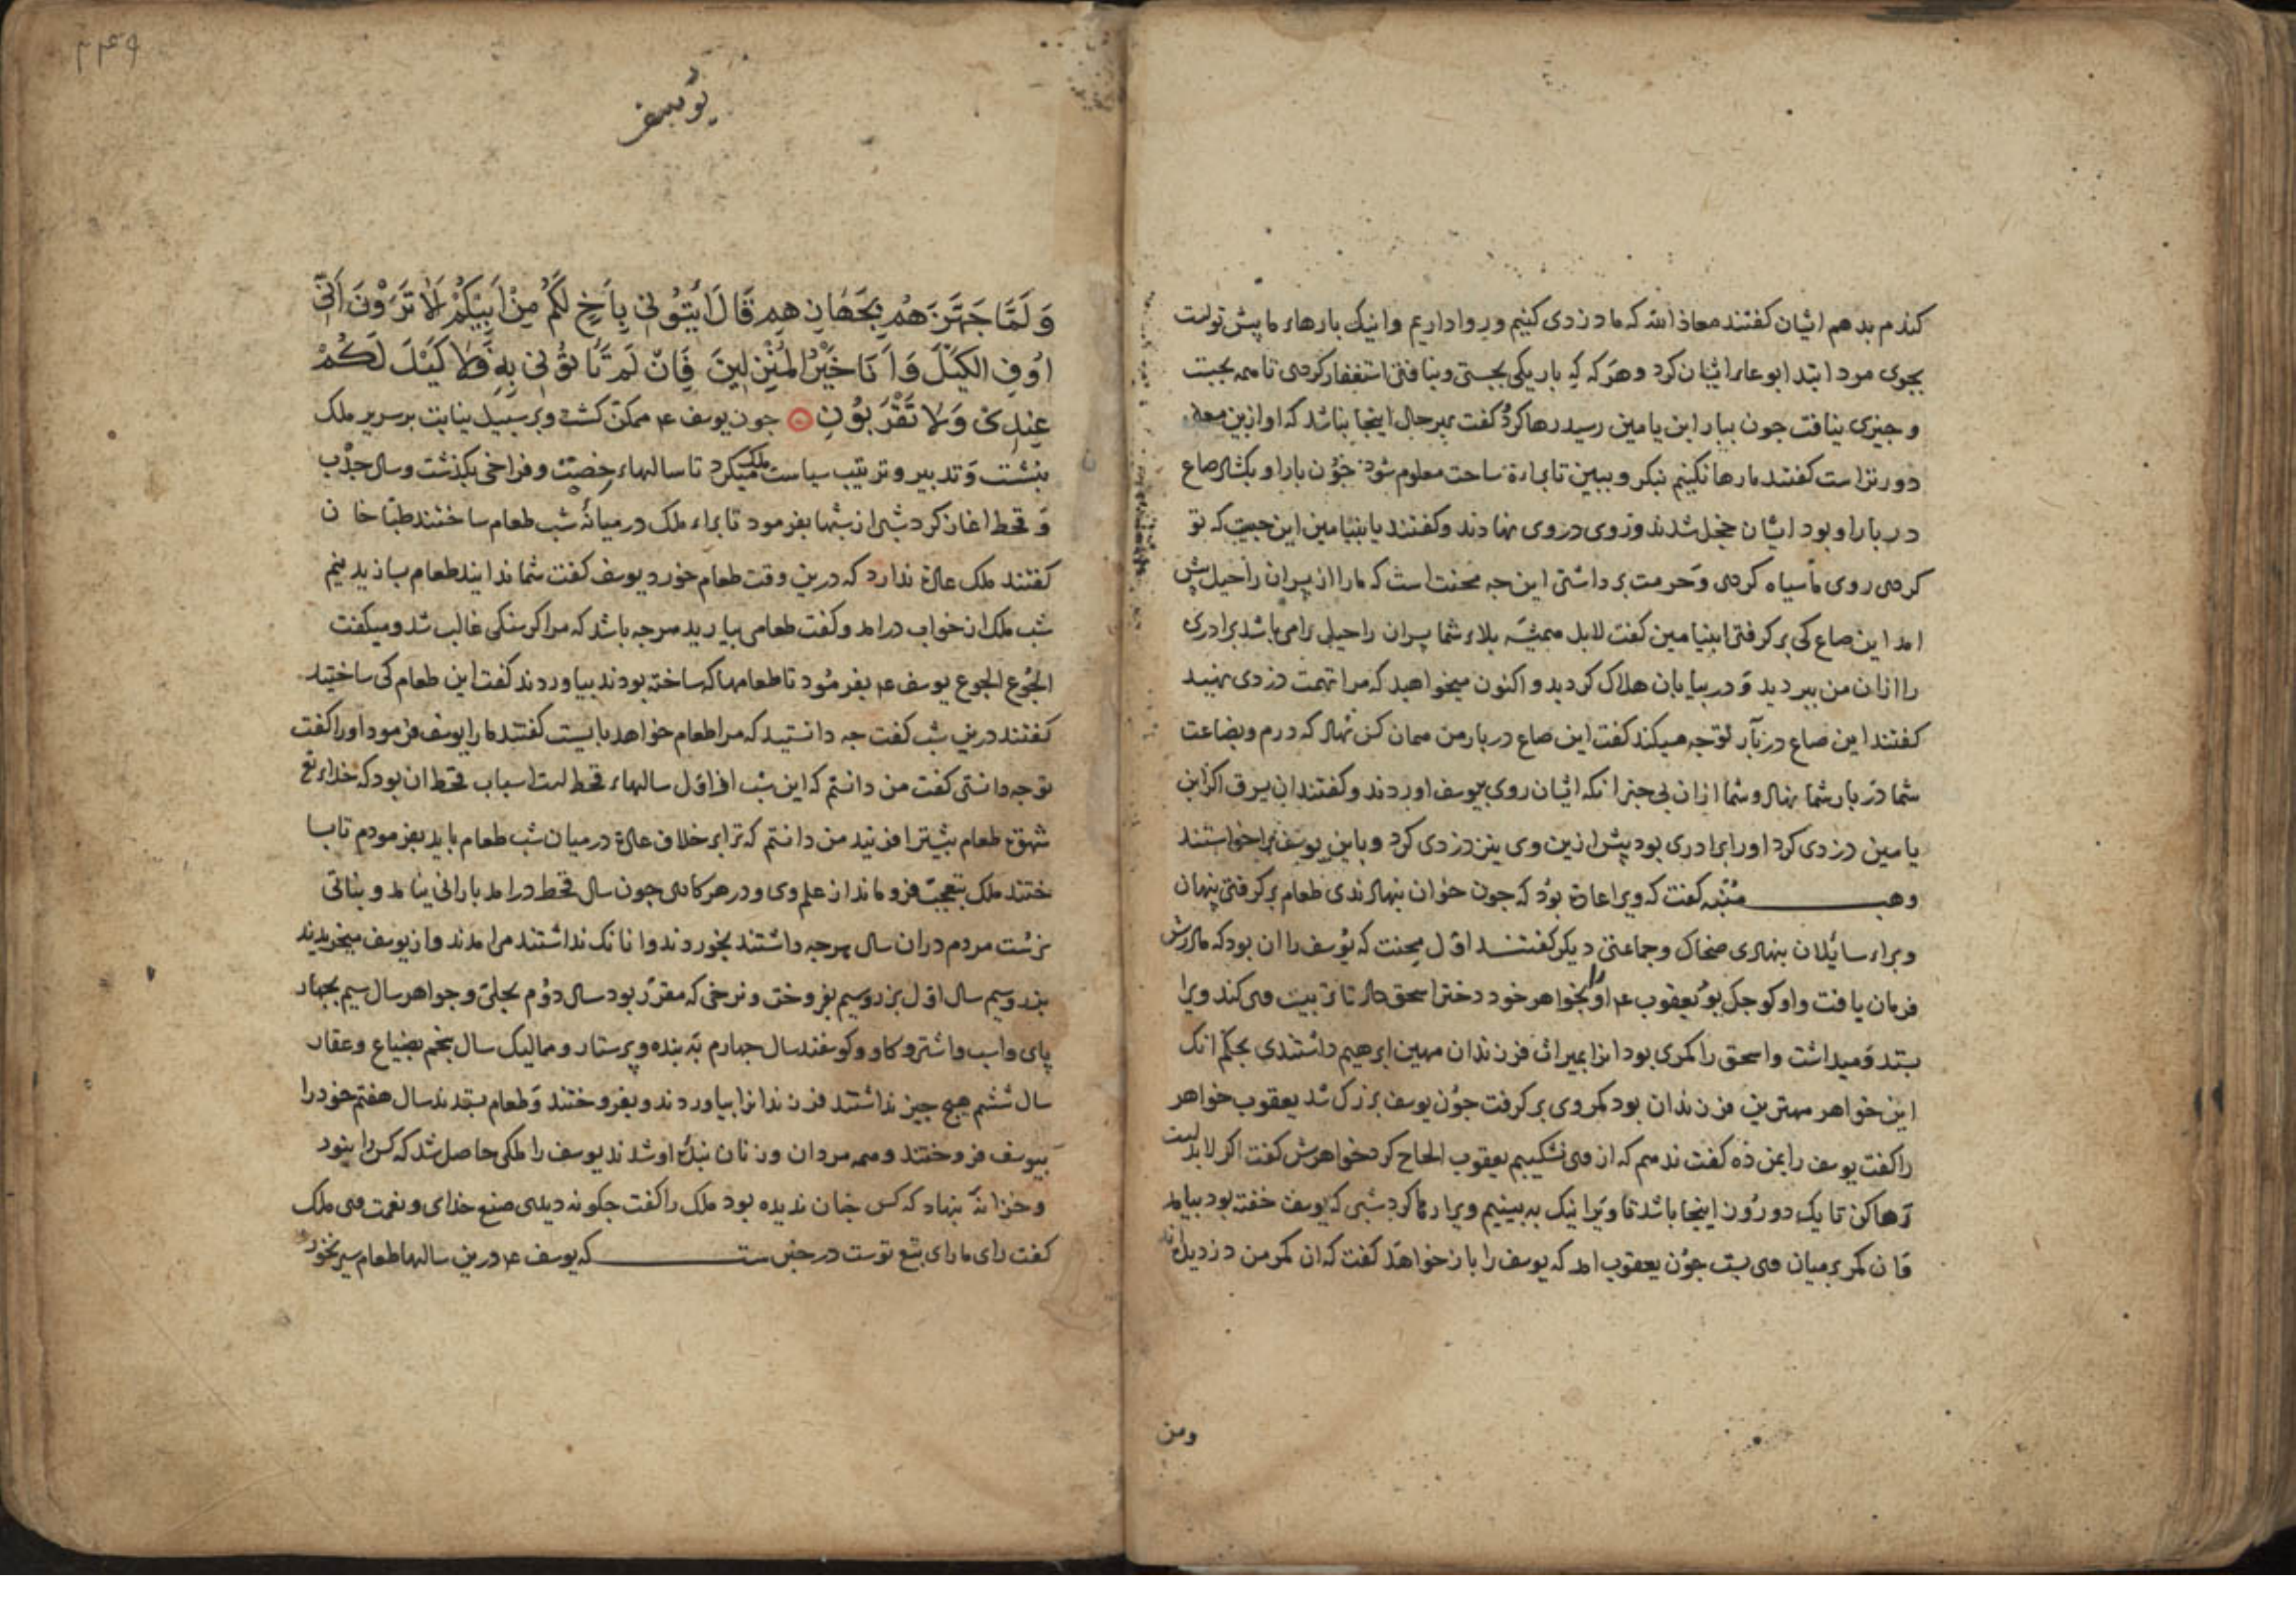 کندم بدهم ایشان کفتند معاذ الله که ما دزدی کنیم و روا داریم و اینک بارهاء ما پیش تواست
بجوی مرد ابتدا بوعاء ایشان کرد و هرکه که بار یکی بجستی و نیافتی استغفار کردی تا همه بجست
و جیزی نیافت جون ببار ابن یامین رسید رها کرد کفت بهر حال اینجا نباشد که او ازین معامله
دورتر است کفتند ما رها نکنیم بنکر و ببین تا براءة ساحت معلوم شود جون بار او بکشاد صاع
در بار او بود ایشان خجل شدند و روی در روی نهادند و کفتند یا بنیامین این جیست که تو
کردی روی ما سیاه کردی و حرمت برداشتی این جه محنت است که ما را از پسران راحیل پیش
امد این صاع کی برکرفتی ابنیامین کفت لابل همیشه بلاء شما پسران راحیل را می باشد برادری
را ازان من ببردید و در بیابان هلاک کردید و اکنون میخواهید که مرا تهمت دزدی نهید
کفتند این صاع در بار تو جه میکند کفت این صاع در بار من همان کس نهاد که درم و بضاعت
شما در بار شما نهاد و شما ازان بی خبر انکه ایشان روی بیوسف اوردند و کفتند ان یسرق اکر ابن
یامین دزدی کرد او را برادری بود پیش ازین وی نیز دزدی کرد و باین یوسف را خواستند
وهب منبه کفت که ویرا عادة بود که جون خوان بنهادندی طعام برکرفتی پنهان
و براء سایلان بنهادی ضحاک و جماعتی دیکر کفتند اول محنت که یوسف را ان بود که مادرش
فرمان یافت و او کوجک بود یعقوب ع او را بخواهر خود دختر اسحق داد تا تربیت می کند ویرا
بستد و میداشت و اسحق را کمری بود انرا بمیراث فرزندان مهین ابرهیم داشتندی بحکم انک
این خواهر مهترین فرزندان بود کمر وی برکرفت جون یوسف بزرک شد یعقوب خواهر
را کفت یوسف را بمن ده کفت ندهم که از وی نشکیبم یعقوب الحاح کرد خواهرش کفت اکر لابد است
رها کن تا یک دو روز اینجا باشد تا ویرا نیک به بینیم ویرا رها کرد شبی که یوسف خفته بود بیامد
و ان کمر بر میان وی بست جون یعقوب امد که یوسف را باز خواهد کفت که ان کمر من دزدیده‌اند
ومن
۲۴۹
یوسف
وَ لَمَّا جَهَّزَهُمْ بِجَهَازِهِمْ قَالَ ائْتُونِي بِأَخٍ لَكُمْ مِنْ أَبِيكُمْ أَلَا تَرَوْنَ أَنِّي
أُوفِي الْكَيْلَ وَأَنَا خَيْرُ الْمُنْزِلِينَ فَإِنْ لَمْ تَأْتُونِي بِهِ فَلَا كَيْلَ لَكُمْ
عِنْدِي وَلَا تَقْرَبُونِ جون یوسف ع ممکن کشت و بر سبیل نیابت بر سریر ملک
بنشست و تدبیر و ترتیب سیاست ملک میکرد تا سالهاء خصب و فراخی بکذشت و سال جدب
و قحط اغاز کرد شبی از شبها بفرمود تا براء ملک در میانه شب طعام ساختند طباخان
کفتند ملک عادة ندارد که درین وقت طعام خورد یوسف کفت شما ندانید طعام بسازید نیم
شب ملک از خواب درامد و کفت طعامی بیارید هرجه باشد که مرا کرسنکی غالب شد و میکفت
الجوع الجوع یوسف ع بفرمود تا طعامها که ساخته بودند بیاوردند کفت این طعام کی ساختید
کفتند درین شب کفت جه دانستید که مرا طعام خواهد بایست کفتند ما را یوسف فرمود او را کفت
تو جه دانستی کفت من دانستم که این شب اول سالهاء قحط است اسباب قحط ان بود که خداء تع
شهوة طعام بیشتر افریند من دانستم که ترا بر خلاف عادة در میان شب طعام باید بفرمودم تا بسا
ختند ملک بتعجب فرو ماند از علم وی و در هر کاری جون سال قحط درامد بارانی نیامد و نباتی
نرست مردم دران سال هرجه داشتند بخوردند و انانک نداشتند می امدند و از یوسف میخریدند
بزر و سیم سال اول بزر و سیم بفروخت و نرخی که مقرر بود سال دوم بحلی و جواهر سال سیم بجهار
پای و اسب و اشتر و کاو و کوسفند سال جهارم به بنده و پرستار و ممالیک سال پنجم بضیاع و عقار
سال ششم هیچ جیز نداشتند فرزندانرا بیاوردند و بفروختند و طعام بستدند سال هفتم خود را
بیوسف فروختند و همه مردان و زنان بنده او شدند یوسف را ملکی حاصل شد که کس را نبود
و خزانه بنهاد که کس جنان ندیده بود ملک را کفت جکونه دیدی صنع خدای و نعمت وی ملک
کفت رای ما رای تبع توست در خبر ست که یوسف ع درین سالها طعام سیر نخورد